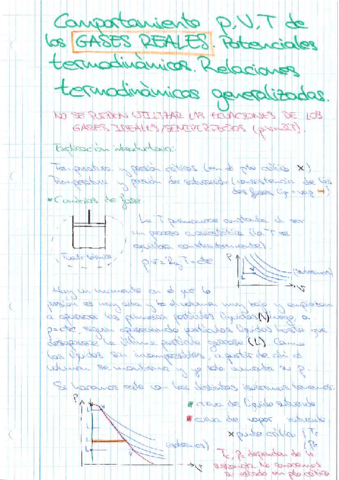 Comportamiento p,V,T de
los GASES REALES. Potenciales
termodinámicos. Relaciones
termodinámicas generalizadas.
NO SE PUEDEN UTILIZAR LAS ECUACIONES DE LOS
GASES IDEALES/SEMIPERFECTOS
Explicación introductoria:
Temperatura y presión críticas (en el pto crítico X)
Temperatura y presión de saturación (coexistencia de las
dos fases
• Cambios de fase
La T permanece constante al ser
un proceso cuasiestático (la T se
equilibra constantemente)
Foco térmico
(isotermas)
Hay un momento en el que la
presión es muy alta y el volumen muy bajo y empiezan
a aparecer las primeras partículas líquidas (V)
parte, siguen apareciendo partículas líquidas hasta que
desaparece la última partícula gaseosa (L). Como
los líquidos son incompresibles, a partir de ahí el
volumen se mantiene y p solo aumenta
Si hacemos esto con las distintas isotermas tenemos:
curva de líquido saturado
curva de vapor saturado
X punto crítico
(isotermas)
dependen de la
sustancia. No
pto crítico